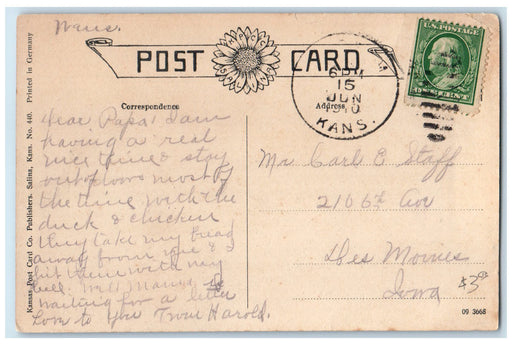 POST CARD
Correspondence
Address
6 PM
15
JUN
1910
KANS.
U.S. POSTAGE
ONE CENT
Dear Papa, I am
having a real
nice time & stay
out doors most of
the time with the
duck & chicken
They take my bread
away from me & I
hit them with my
waiting for a letter
Love to you Harold.
Mr Carl E Staff
2106th Ave
Des Moines
Iowa
Kansas Post Card Co. Publishers. Salina, Kans. No. 440. Printed in Germany
09 3668